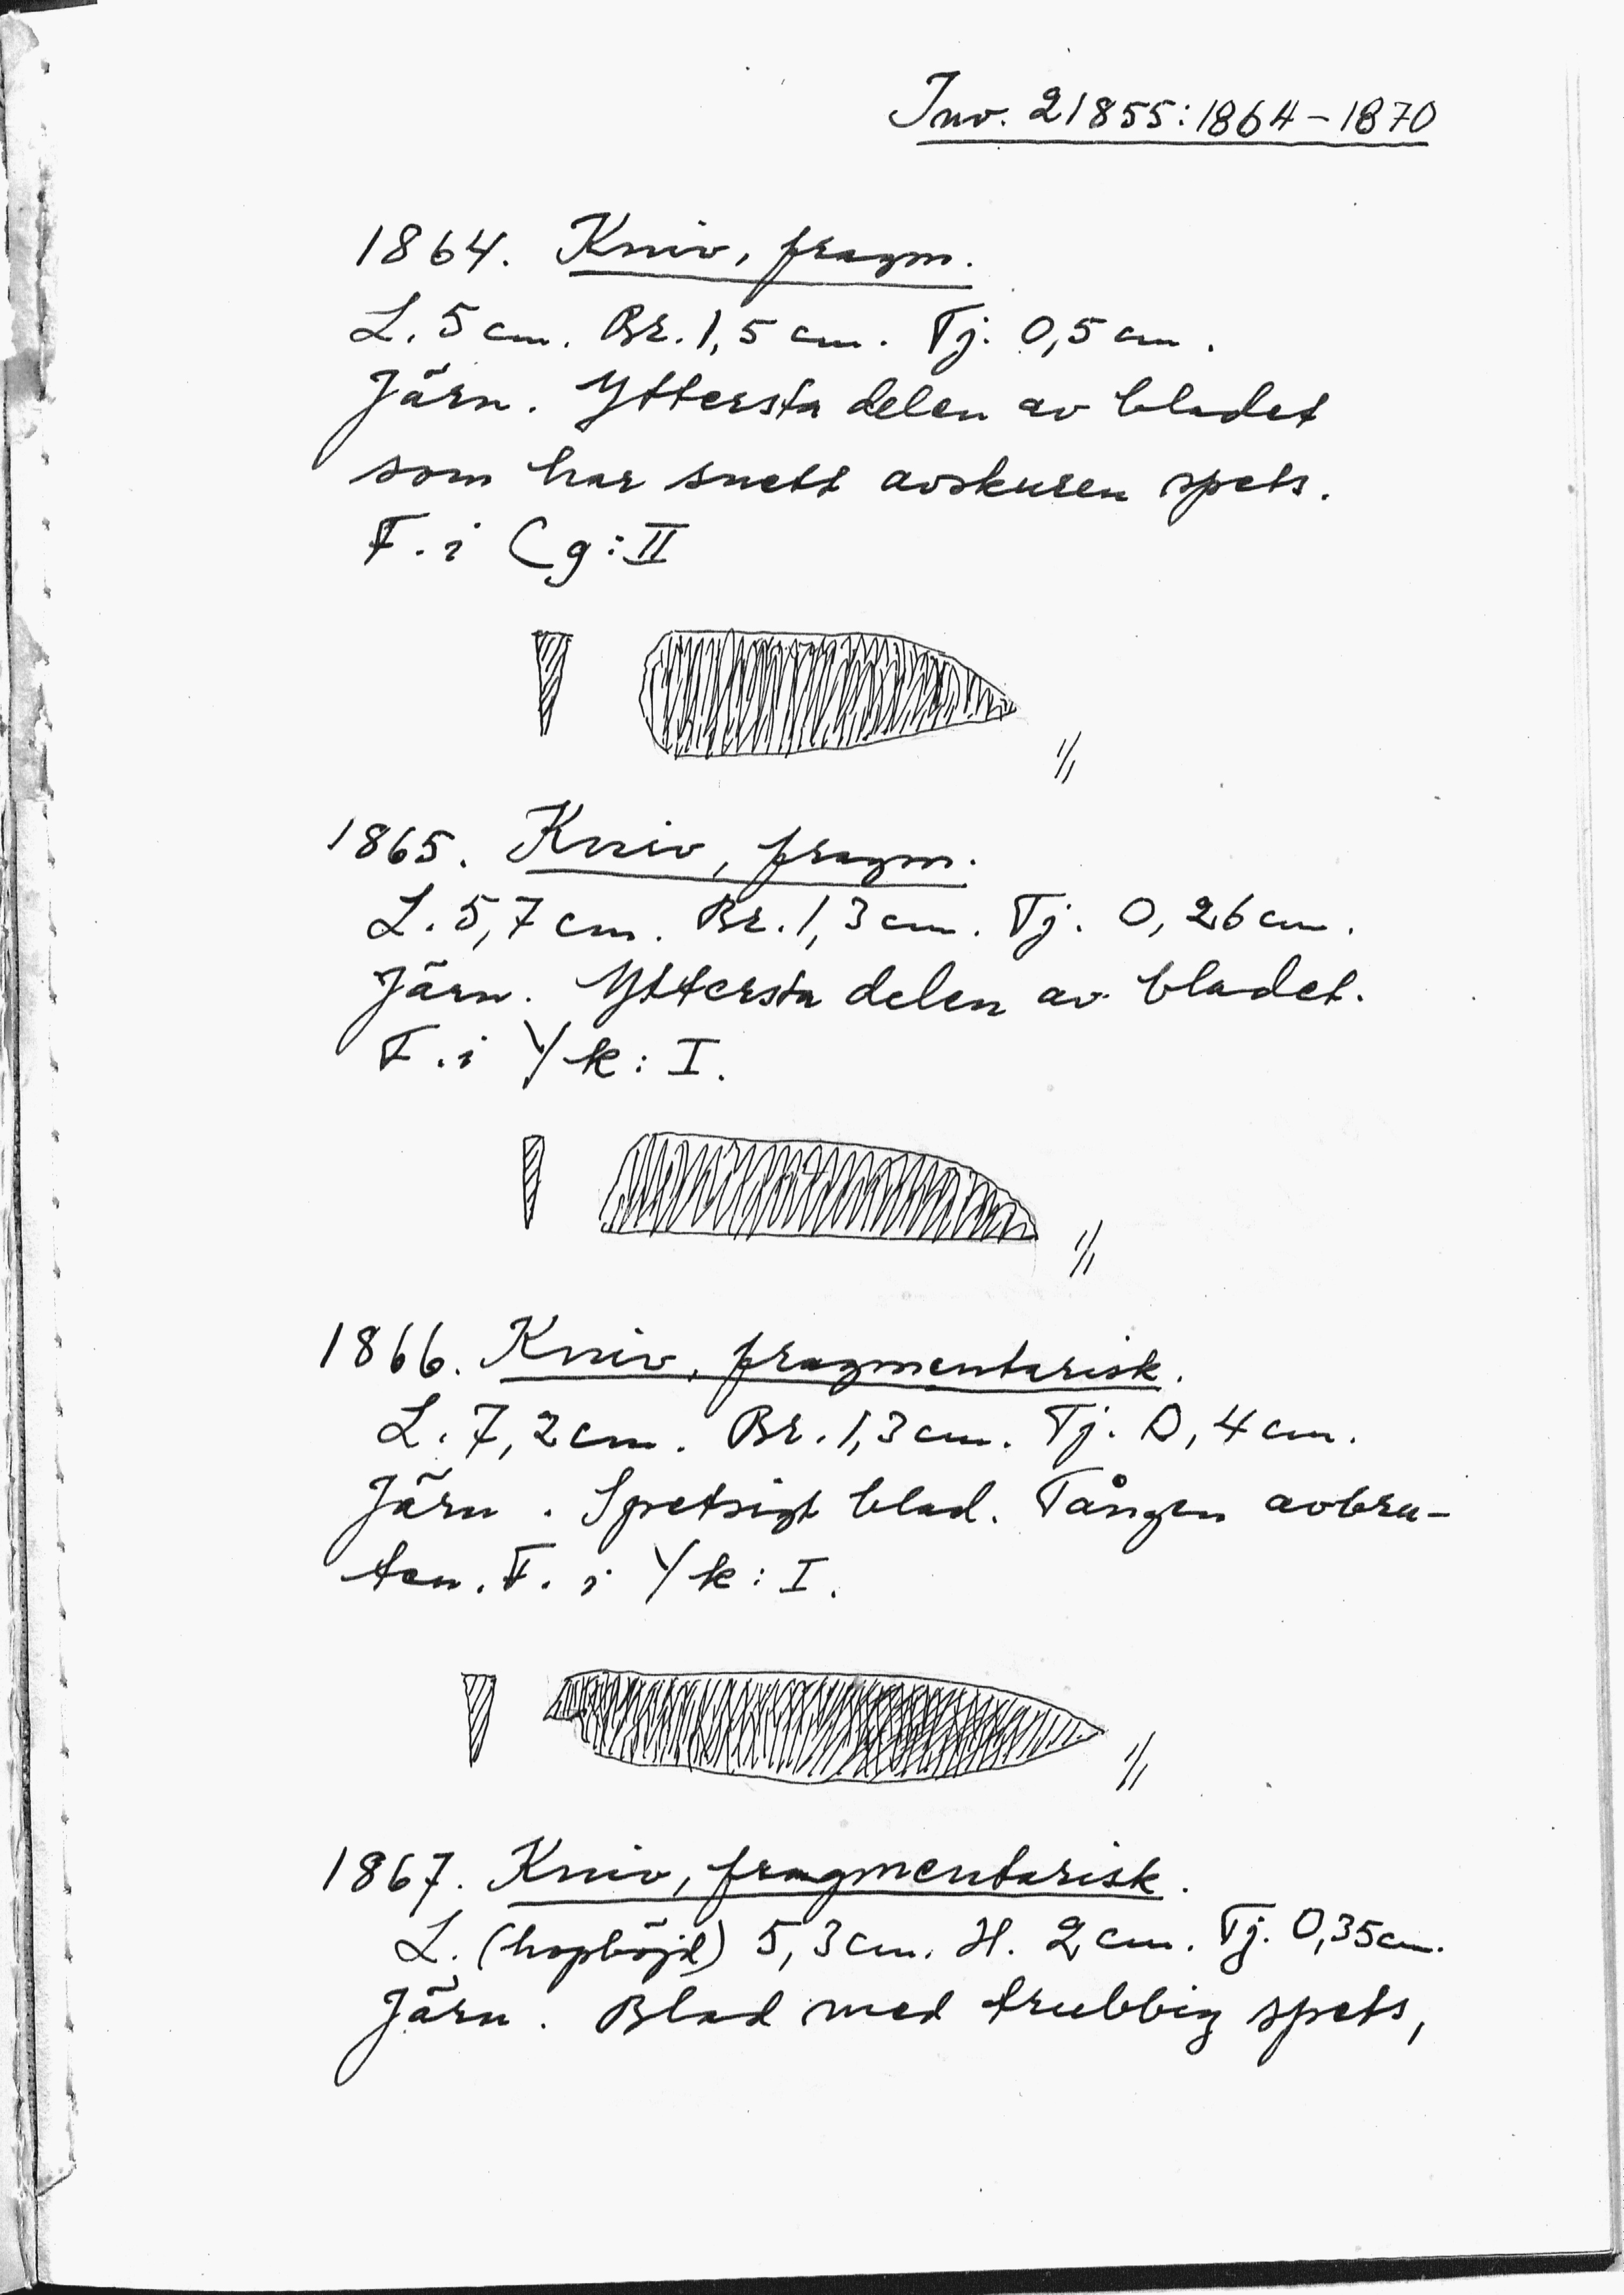 Inv. 21855:1864-1870
1864. Kniv, fragm.
L. 5 cm. Br. 1,5 cm. Tj. 0,5 cm.
Järn. Yttersta delen av bladet
som har snett avskuren spets.
F. i Cg:II
1/1
1865. Kniv, fragm.
L. 5,7 cm. Br. 1,3 cm. Tj. 0,26 cm.
Järn. Yttersta delen av bladet.
F. i Yk: I.
1/1
1866. Kniv, fragmentarisk.
L. 7,2 cm. Br. 1,3 cm. Tj. 0,4 cm.
Järn. Spetsigt blad. Tången avbru-
ten. F. i Yk: I.
1/1
1867. Kniv, fragmentarisk.
L. (hopböjd) 5,3 cm. H. 2 cm. Tj. 0,35 cm.
Järn. Blad med trubbig spets,